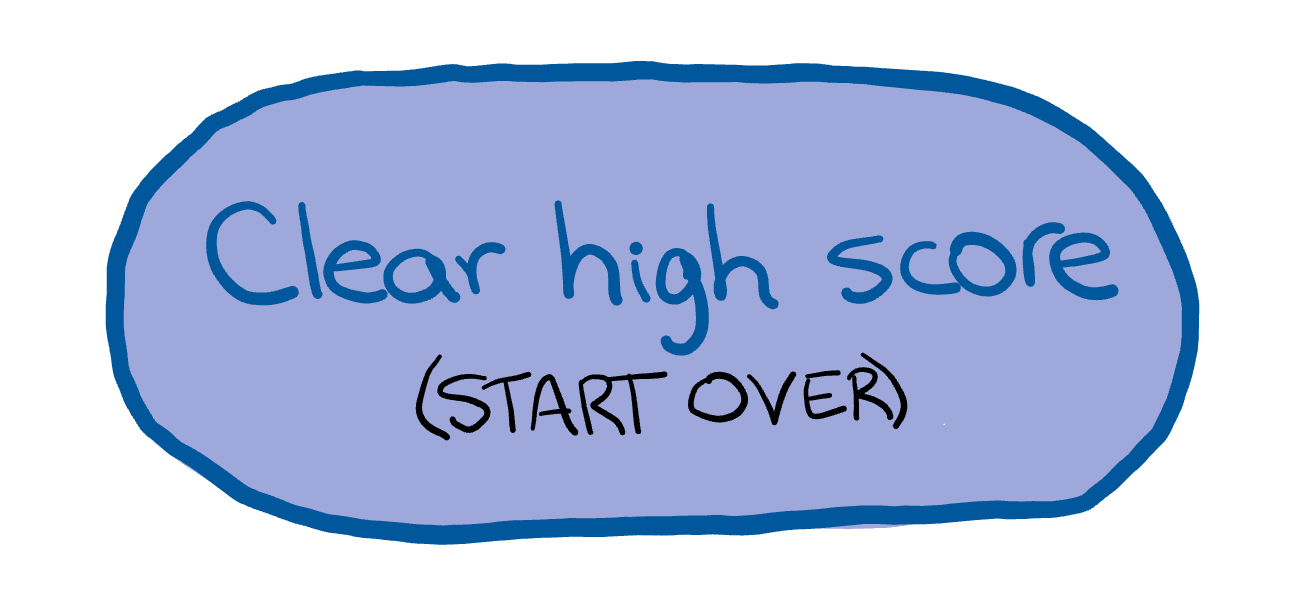 Clear high score
(START OVER)